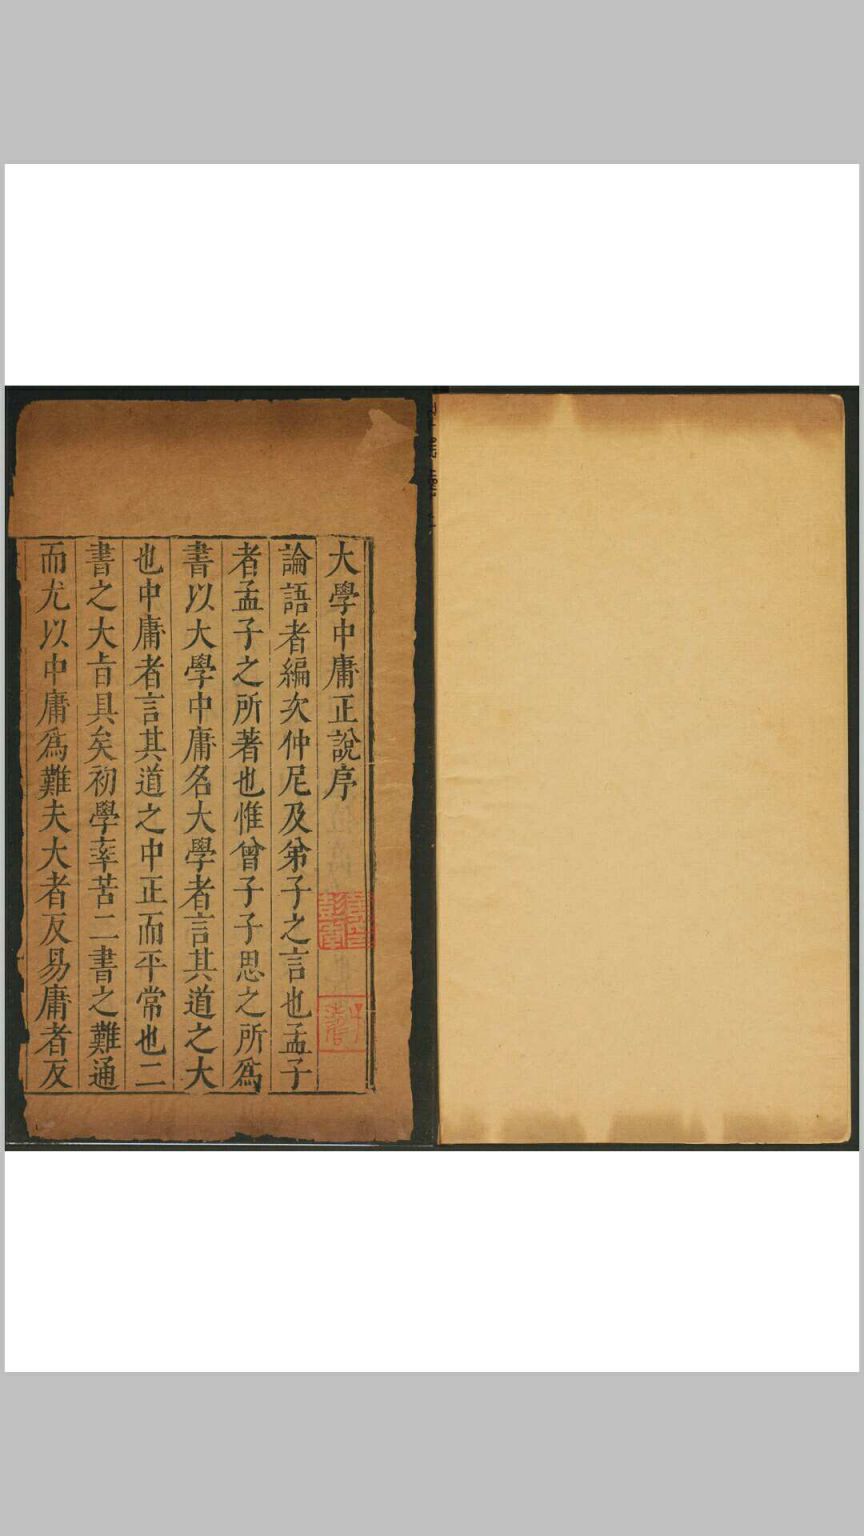 大學中庸正說序
論語者編次仲尼及弟子之言也孟子
者孟子之所著也惟曾子子思之所爲
書以大學中庸名大學者言其道之大
也中庸者言其道之中正而平常也二
書之大旨具矣初學率苦二書之難通
而尤以中庸爲難夫大者反易庸者反